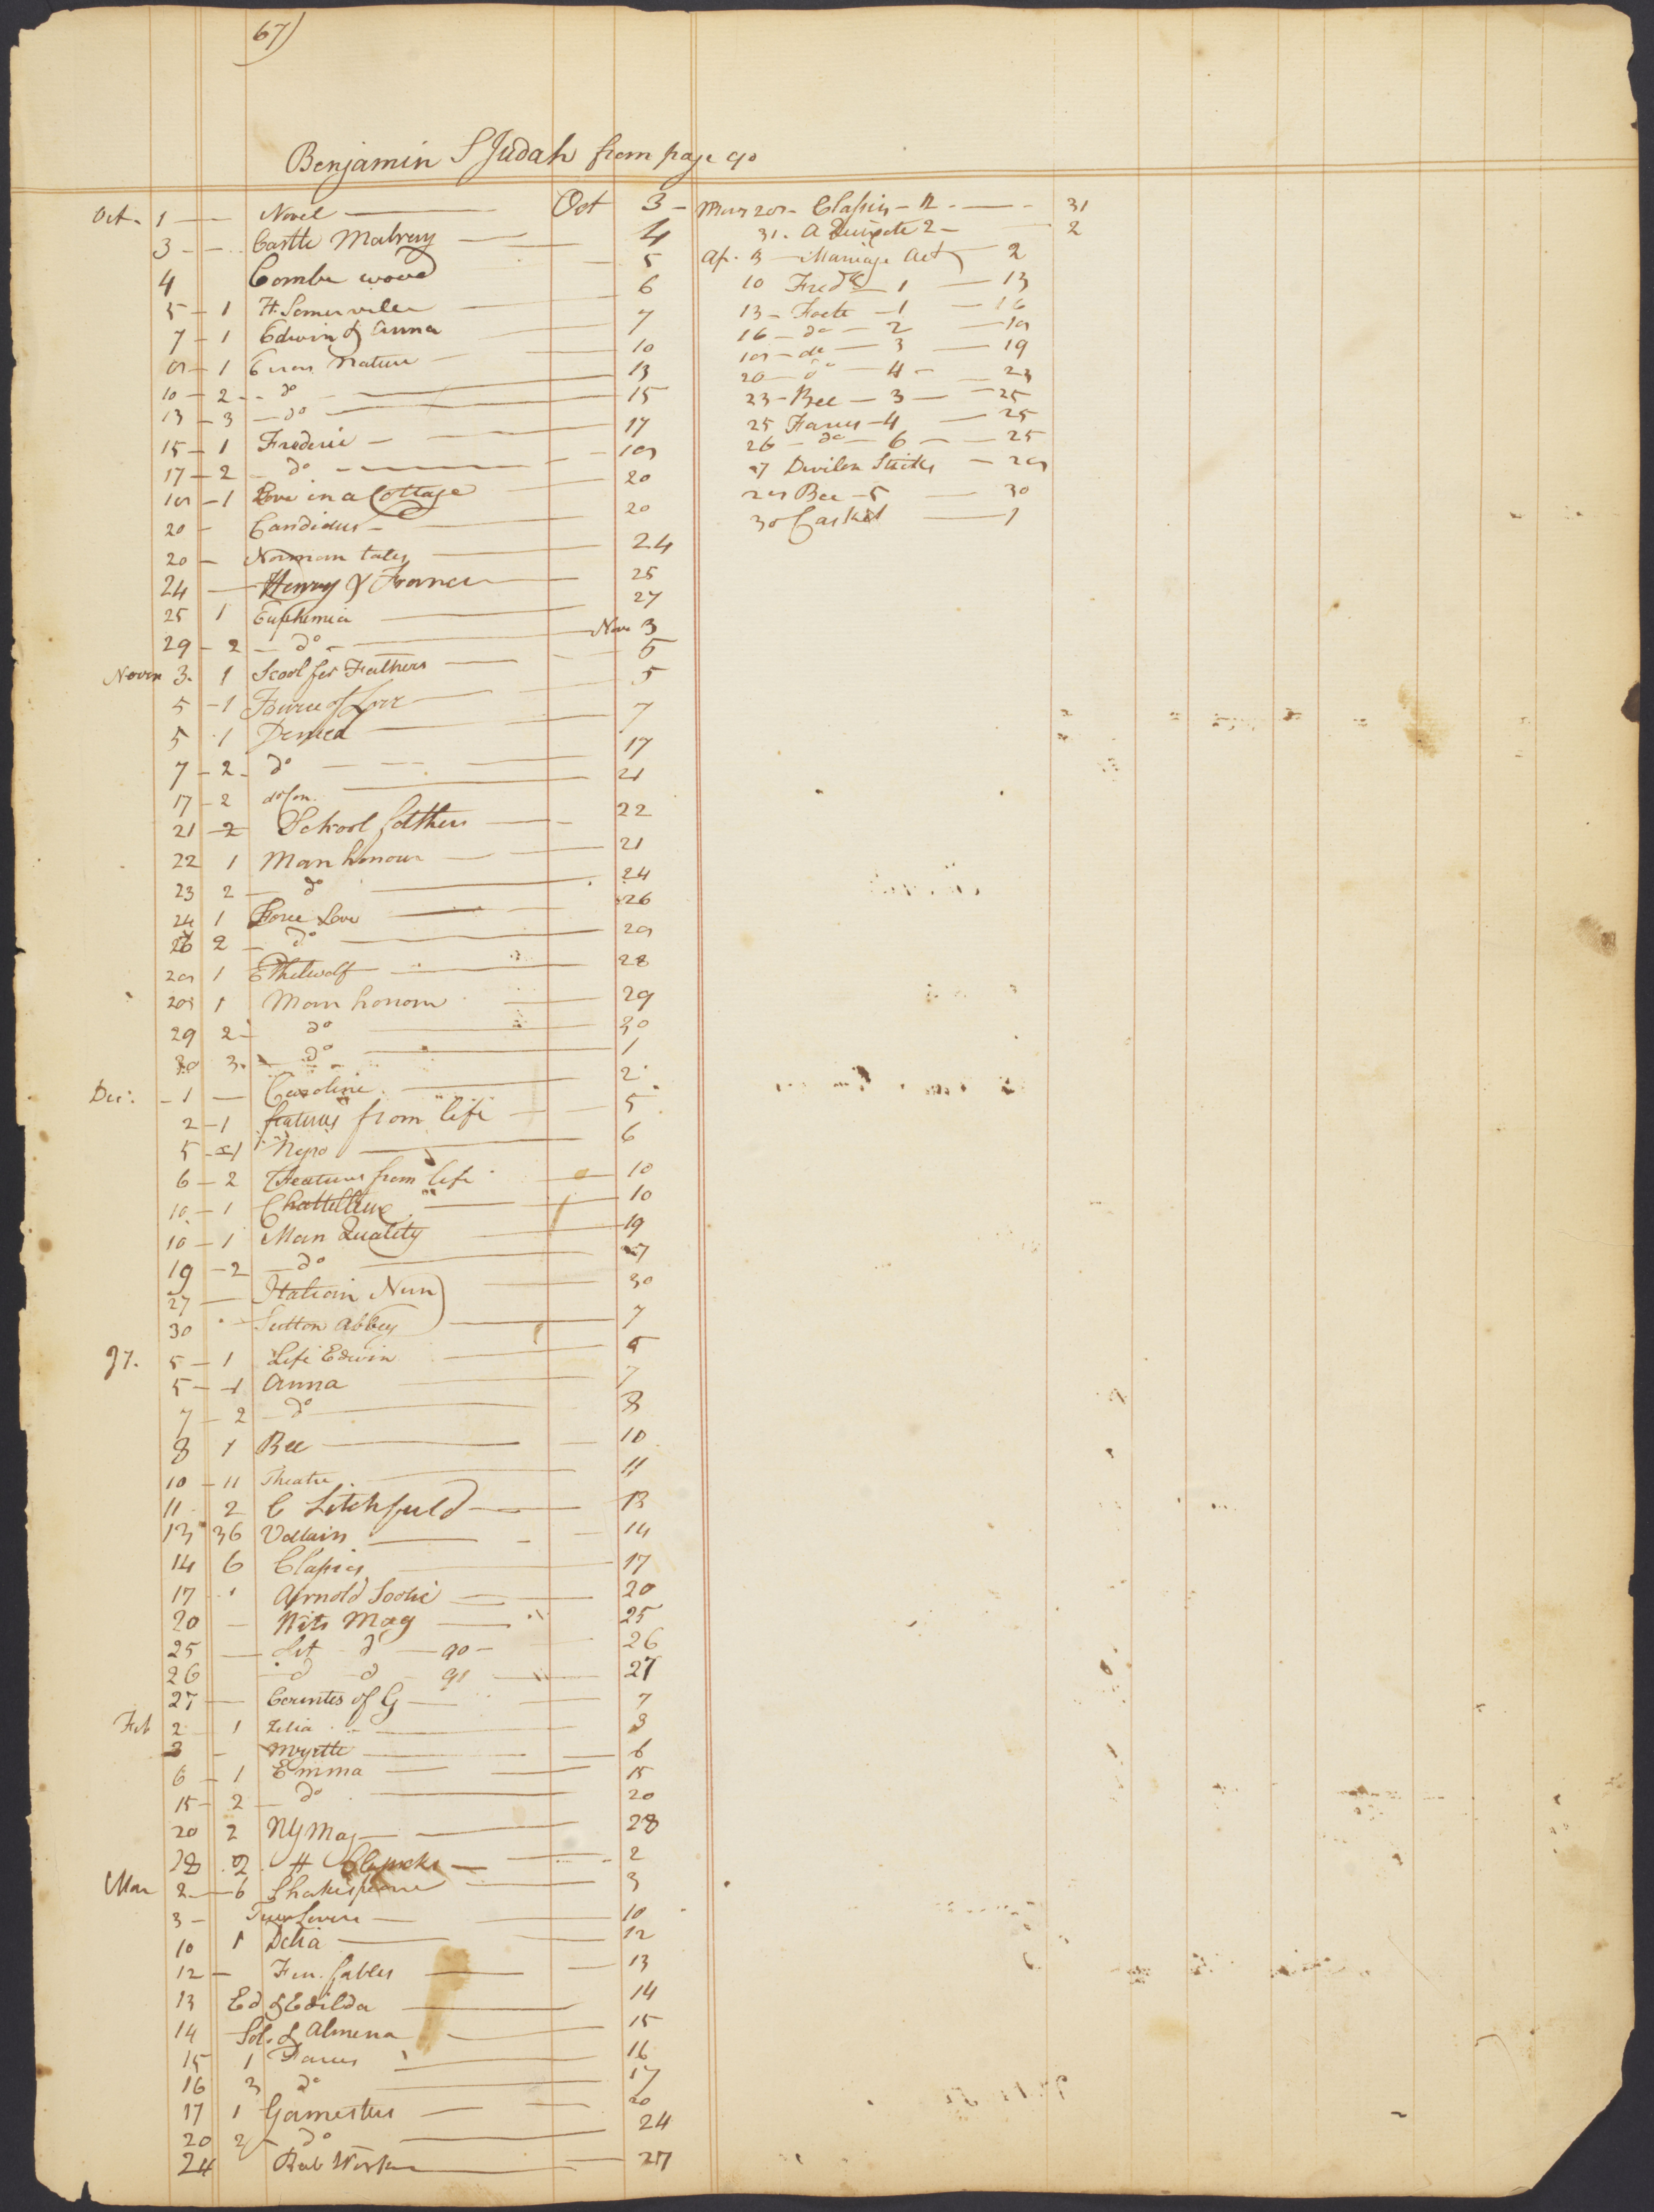 67)
Benjamin S Judah from page 90
Oct. 1 — Novel — Oct 3
3 - Castle Mowbray — 4
4 Combe wood — 5
5 - 1 H. Somerville — 6
7 - 1 Edwin & Anna — 7
1 Errors Nature — 10
10 - 2 - do — 13
13 - 3 - do — 15
15 - 1 Frederic — 17
17 - 2 - do — 18
18 - 1 Love in a Cottage — 20
20 - Candidus — 20
20 - Norman tales — 24
24 — Henry & Frances — 25
25 1 Euphemia — 27
29 - 2 - do — Nov 3
Novr 3. 1 Scool for Fathers — 5
5 - 1 Force of Love — 5
5 1 Denied — 7
7 - 2 - do — 17
17 - 2 — 21
21 - 2 School fathers — 22
22 1 Man honour — 21
23 2 — do — 24
24 1 Force Love — 26
26 2 — do — 28
28 1 Ethelwolf — 28
28 1 Man honour — 29
29 2 - do — 30
30 3 - do — 1
Dec. - 1 — Caroline — 2
2 - 1 featurs from life — 5
5 - 1 Negro — 6
6 - 2 Featurs from life — 10
10 - 1 — 10
10 - 1 Man Quality — 19
19 - 2 - do — 27
27 — Italian Nun — 30
30 Sutton Abbey — 7
97. 5 - 1 Life Edwin — 5
5 - 1 Anna — 7
7 - 2 - do — 8
8 1 Bee — 10
10 - 11 Theatre — 11
11 2 C Litchfield — 13
13 36 — 14
14 6 Classics — 17
17 1 Arnold — 20
20 — Mag — 25
25 — Lit do — 90 — 26
26 - d - d - 91 — 27
27 — Countes of G — 7
Feb 2 1 Zelia — 3
3 - Myrtle — 6
6 - 1 Emma — 15
15 - 2 - do — 20
20 2 NY Mag — 28
28 2 H — 2
Mar 2 - 6 Shakespeare — 3
3 - Lovers — 10
10 1 Delia — 12
12 - Fen. fables — 13
13 Ed & Edilda — 14
14 Sol. & Almena — 15
15 1 Farces — 16
16 3 do — 17
17 1 Gamesters — 20
20 2 - do — 24
24 Rab Works — 27
Mar 28 - Classics - 12 — 31
31. D Quixote 2 — 2
Ap. 3 — Marriage Act — 2
10 Fredk 1 — 13
13 - Foote - 1 — 16
16 - do - 2 — 18
18 - do — 3 — 19
20 — do — 4 — 23
23 - Bee — 3 — 25
25 Farces - 4 — 25
26 - do - 6 — 25
27 Devil on Sticks — 28
28 Bee - 5 — 30
30 Casket — 1